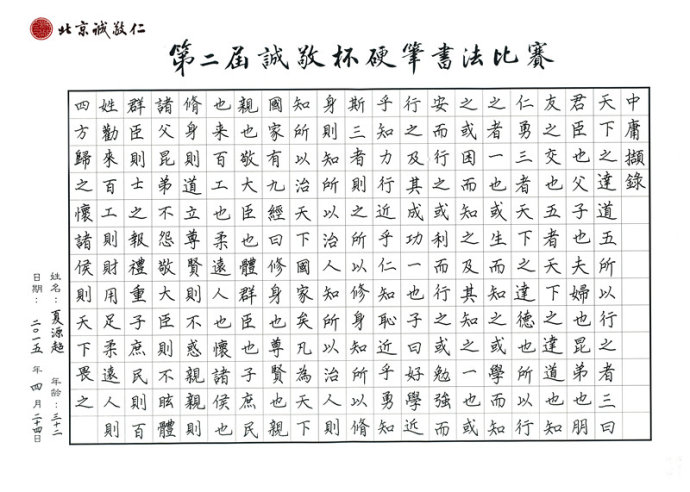 北京誠敬仁
第二届誠敬杯硬筆書法比賽
中庸擷錄
天下之達道五所以行之者三曰
君臣也父子也夫婦也昆弟也朋
友之交也五者天下之達道也知
仁勇三者天下之達德也所以行
之者一也或生而知之或學而知
之或困而知之及其知之一也或
安而行之或利而行之或勉強而
行之及其成功一也子曰好學近
乎知力行近乎仁知恥近乎勇知
斯三者則知所以脩身知所以脩
身則知所以治人知所以治人則
知所以治天下國家矣凡為天下
國家有九經曰脩身也尊賢也親
親也敬大臣也體群臣也子庶民
也來百工也柔遠人也懷諸侯也
脩身則道立尊賢則不惑親親則
諸父昆弟不怨敬大臣則不眩體
群臣則士之報禮重子庶民則百
姓勸來百工則財用足柔遠人則
四方歸之懷諸侯則天下畏之
姓名：夏源超 年齡：三十二
日期：二〇一五年四月二十四日